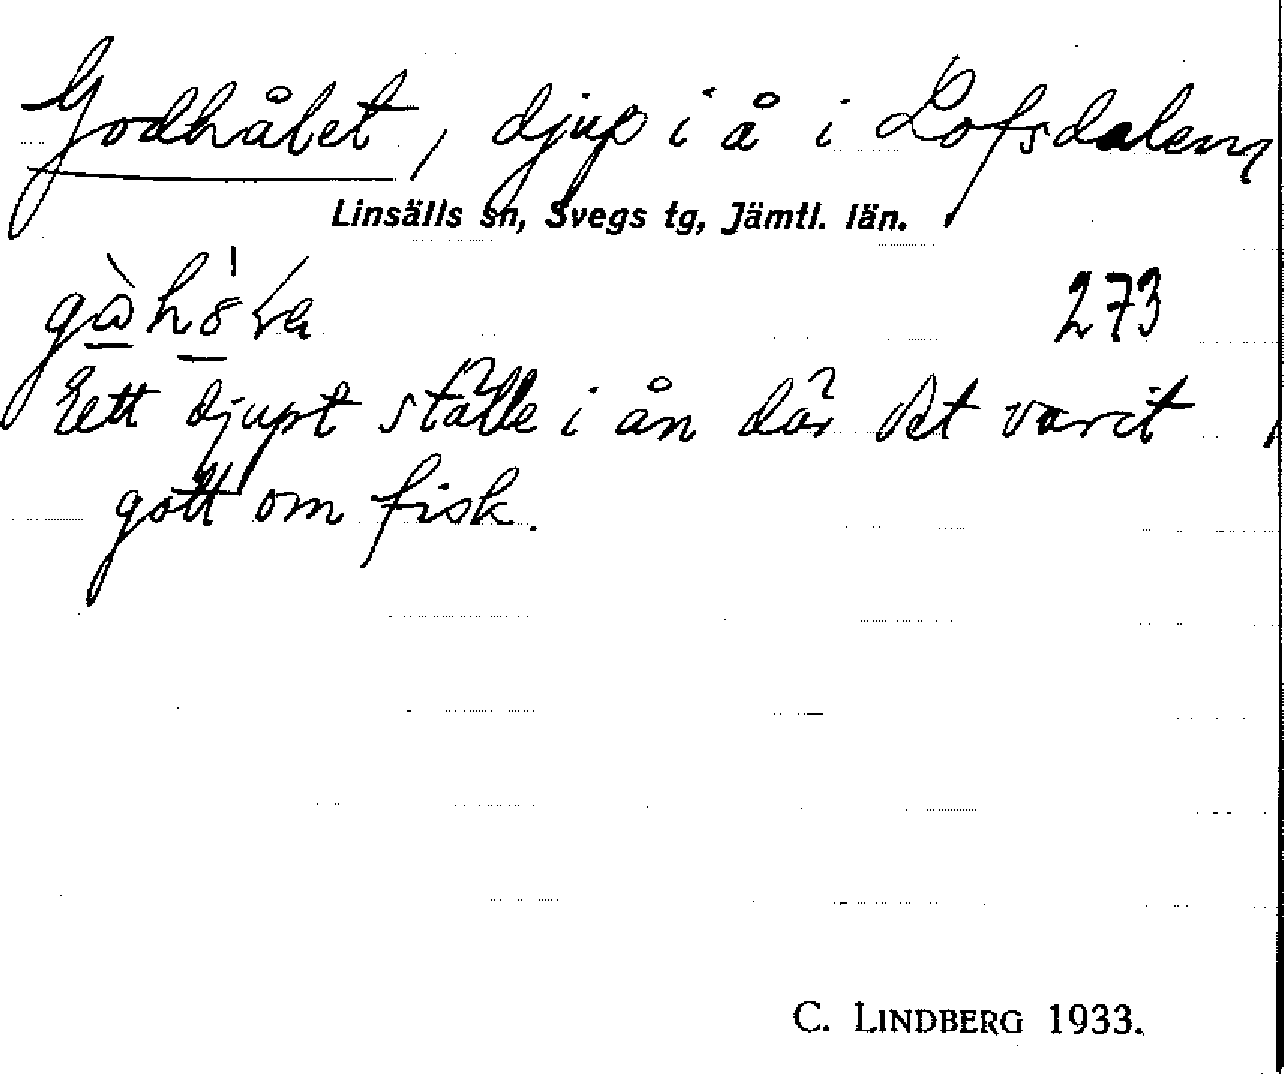 Godhålet, djup i å i Lofsdalen
Linsälls sn, Svegs tg, Jämtl. län.
273
Ett djupt ställe i ån där det varit
gott om fisk.
C. LINDBERG 1933.